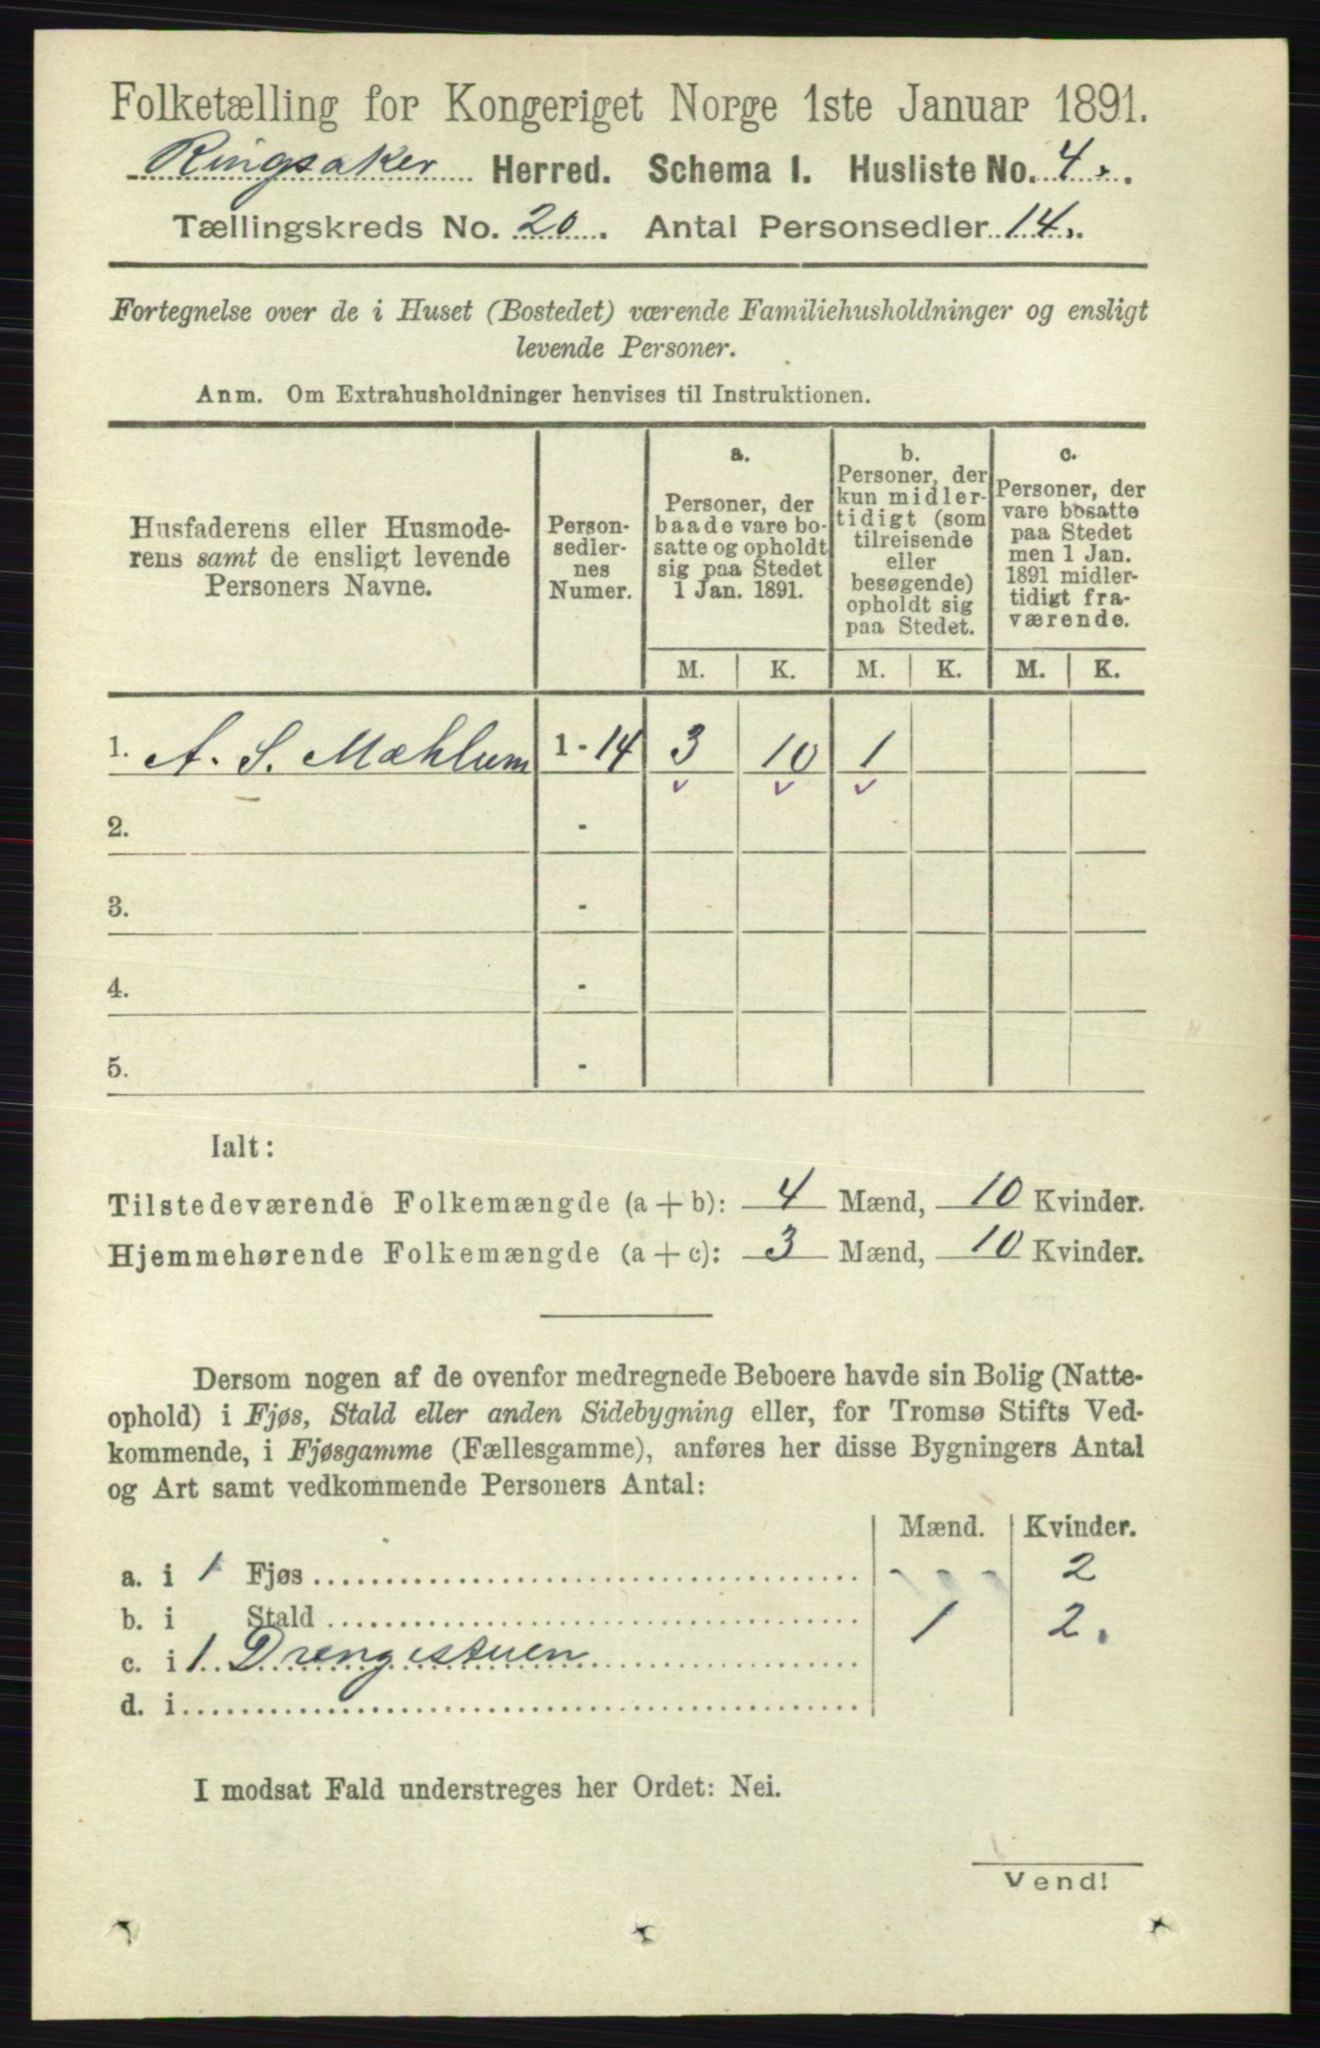 Folketælling for Kongeriget Norge 1ste Januar 1891.
Ringsaker Herred. Schema I. Husliste No. 4.
Tællingskreds No. 20. Antal Personsedler 14.
Fortegnelse over de i Huset (Bostedet) værende Familiehusholdninger og ensligt
levende Personer.
Anm. Om Extrahusholdninger henvises til Instruktionen.
Husfaderens eller Husmode-
rens samt de ensligt levende
Personers Navne.
Person-
sedler-
nes
Numer.
a.
Personer, der
baade vare bo-
satte og opholdt
sig paa Stedet
1 Jan. 1891.
b.
Personer, der
kun midler-
tidigt (som
tilreisende
eller
besøgende)
opholdt sig
paa Stedet.
c.
Personer, der
vare bosatte
paa Stedet
men 1 Jan.
1891 midler-
tidigt fra-
værende.
M. K. M. K. M. K.
1. A. S. Mæhlum 1-14 3 10 1
2. -
3. -
4. -
5. -
Ialt:
Tilstedeværende Folkemængde (a+b): 4 Mænd, 10 Kvinder.
Hjemmehørende Folkemængde (a+c): 3 Mænd, 10 Kvinder.
Dersom nogen af de ovenfor medregnede Beboere havde sin Bolig (Natte-
ophold) i Fjøs, Stald eller anden Sidebygning eller, for Tromsø Stifts Ved-
kommende, i Fjøsgamme (Fællesgamme), anføres her disse Bygningers Antal
og Art samt vedkommende Personers Antal:
Mænd. Kvinder.
a. i 1 Fjøs - - - 2
b. i Stald 1 2.
c. i 1 Drengestuen
d. i
I modsat Fald understreges her Ordet: Nei.
Vend!